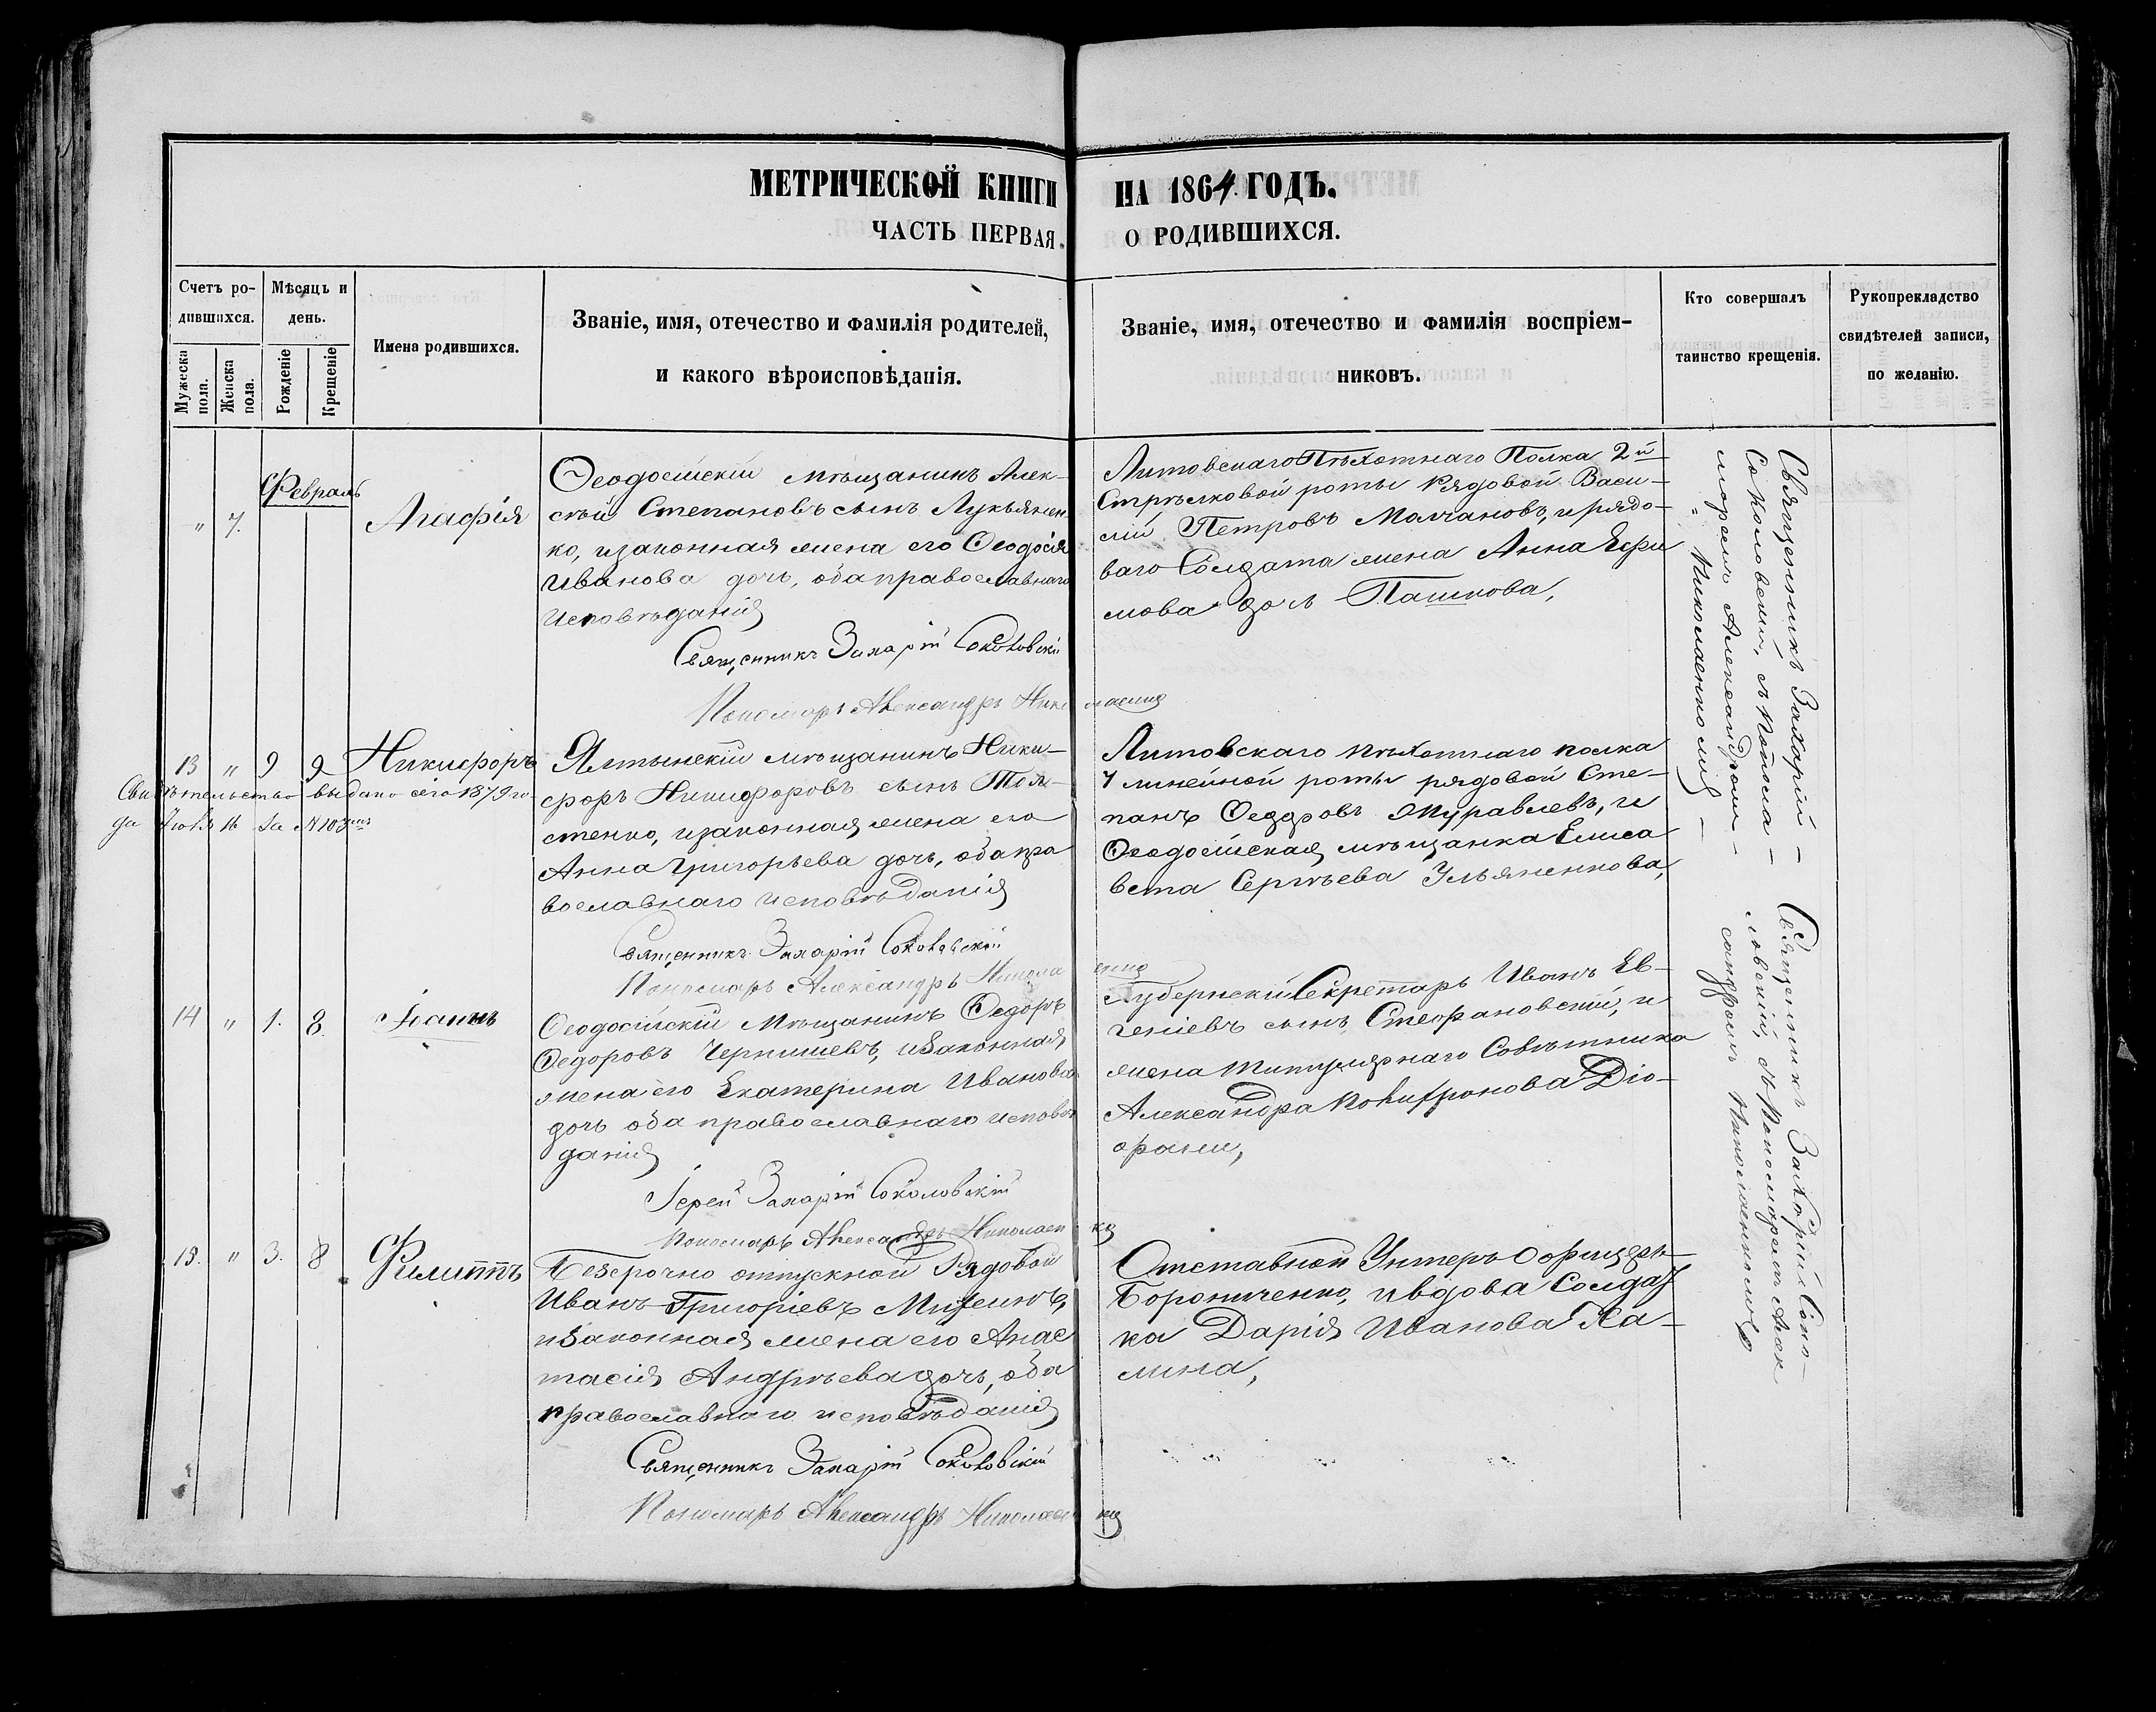 МЕТРИЧЕСКОЙ КНИГИ НА 1864. ГОДЪ.
ЧАСТЬ ПЕРВАЯ. О РОДИВШИХСЯ.
Счетъ ро-
дившихся.
Мужеска пола.
Женска пола.
Мѣсяць и
день.
Рожденіе
Крещеніе
Имена родившихся.
Званіе, имя, отечество и фамилія родителей,
и какого вѣроисповѣданія.
Званіе, имя, отечество и фамилія воспріем-
никовъ.
Кто совершалъ
таинство крещенія.
Рукопрекладство
свидѣтелей записи,
по желанію.
Февраль
" 7.
Агафія
Ѳеодосійскій мѣщанинъ Алек-
сѣй Степановъ сынъ Лукьянен-
ко, и законная жена его Ѳеодосія
Иванова дочь, оба православнаго
исповѣданія
Священникъ Захарій Соколовскій
Пономарь Александръ Николаенко
Литовскаго Пѣхотнаго Полка 2й
Стрѣлковой роты Рядовой Васи-
лій Петровъ Молчановъ, и рядо-
ваго Солдата жена Анна Ефи
мова дочь Пашкова,
Священникъ Захарій
Соколовскій, съ Поно-
маремъ Александромъ
Николаенкомъ
13 " 9 9 Никифоръ
Свидѣтельство выдано сего 1879 го-
да Іюля 16 за №103мъ
Ялтынскій мѣщанинъ Ники-
форъ Никифоровъ сынъ Тол-
стенко, и законная жена его
Анна Григорьева дочь, оба пра
вославнаго исповѣданія
Священникъ Захарій Соколовскій
Пономарь Александръ Николаенко
Литовскаго пѣхотнаго полка
4 линейной роты рядовой Сте-
панъ Ѳедоровъ Журавлевъ, и
Ѳеодосійская мѣщанка Елиса
вета Сергѣева Ульяненкова,
14 " 1. 8. Іоаннъ
Ѳеодосійскій Мѣщанинъ Ѳедоръ
Ѳедоровъ Чернишевъ, и законная
жена его Екатерина Иванова
дочь оба православнаго исповѣ
данія
Іерей Захарій Соколовскій
Пономарь Александръ Николаенко
Губернскій Секретарь Иванъ Ев-
геніевъ сынъ Стефановскій, и
жена Титулярнаго Совѣтника
Александра
Священникъ Захарій Соко-
ловскій, съ Пономаремъ Алек
сандромъ Николаенкомъ
15. " 3. 8 Филиппъ
Безсрочно отпускной Рядовой
Иванъ Григоріевъ
и законная жена его Анас
тасія Андрѣева дочь, оба
православнаго исповѣданія
Священникъ Захарій Соколовскій
Пономарь Александръ Николаенко
Отставной Унтеръ Офицеръ
Борониченко, и вдова Солдат
ка Дарія Иванова Ка-
лина,